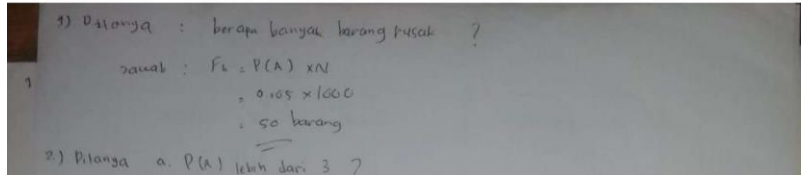 1) Ditanya : berapa banyak barang rusak ?
Jawab : Fh = P(A) x N
= 0,05 x 1000
= 50 barang
2.) Ditanya a. P(A) lebih dari 3 ?